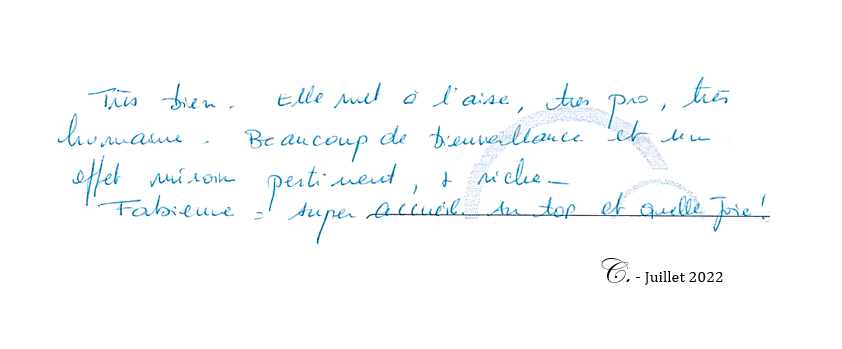 Très bien. Elle met à l'aise, très pro, très
humaine. Beaucoup de bienveillance et un
effet miroir pertinent, & riche_
Fabienne = super accueil au top et quelle Joie!
C. - Juillet 2022